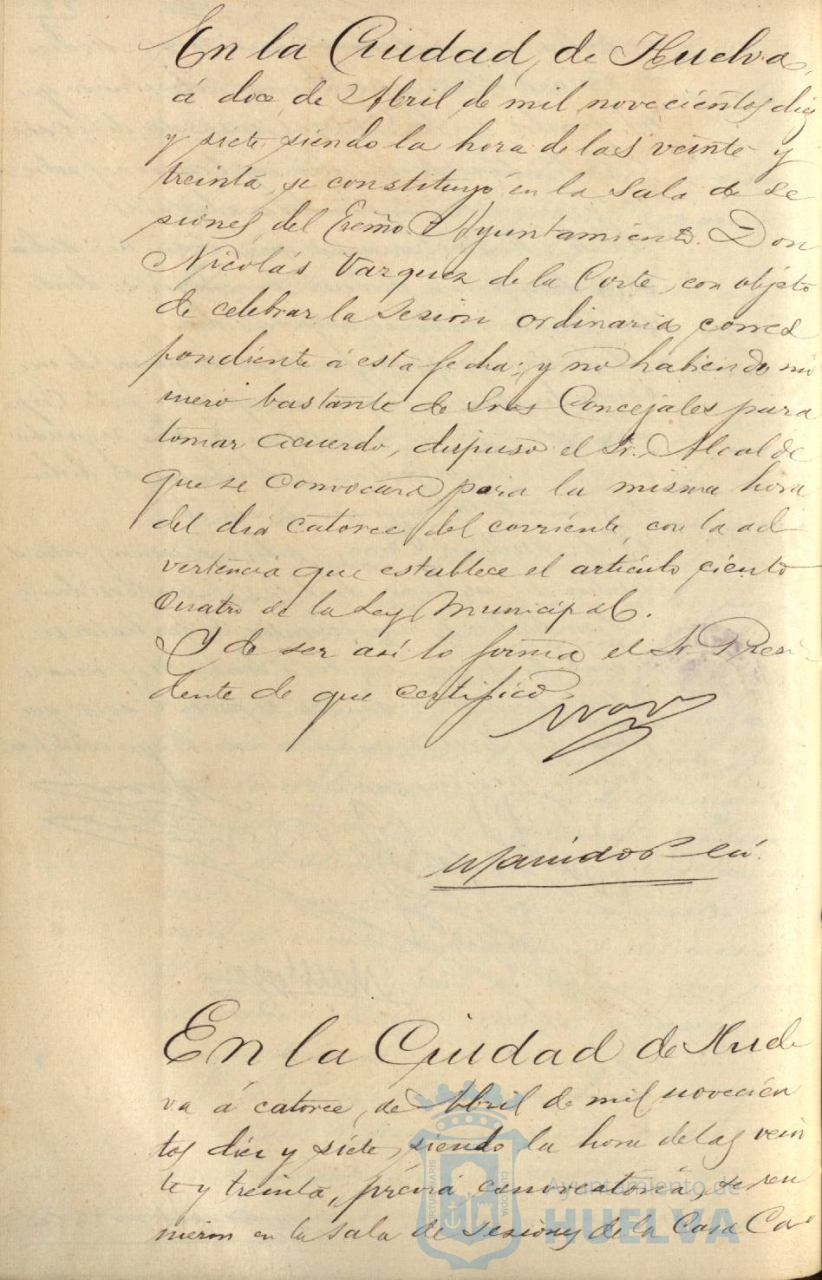 En la Ciudad, de Huelva,
á doce de Abril de mil novecientos diez
y siete siendo la hora de las veinte y
treinta, se constituyó en la Sala de Se
siones, del Excmo Ayuntamiento. Don
Nicolás Vazquez de la Corte, con objeto
de celebrar la Sesion ordinaria corres
pondiente á esta fecha; y no habiendo nú
mero bastante de Sres Concejales para
tomar acuerdo, dispuso el Sr. Alcalde
que se convocára para la misma hora
del dia catorce del corriente, con la ad
vertencia que establece el artículo ciento
cuatro de la Ley Municipal.
Y de ser así lo firma el Sr Presi
dente de que certifico.
En la Ciudad de Huel
va á catorce, de Abril de mil novecien
tos diez y siete, siendo la hora de las vein
te y treinta, prévia convocatoria, se reu
nieron en la Sala de Sesiones de la Casa Ca
Ayuntamiento de
HUELVA